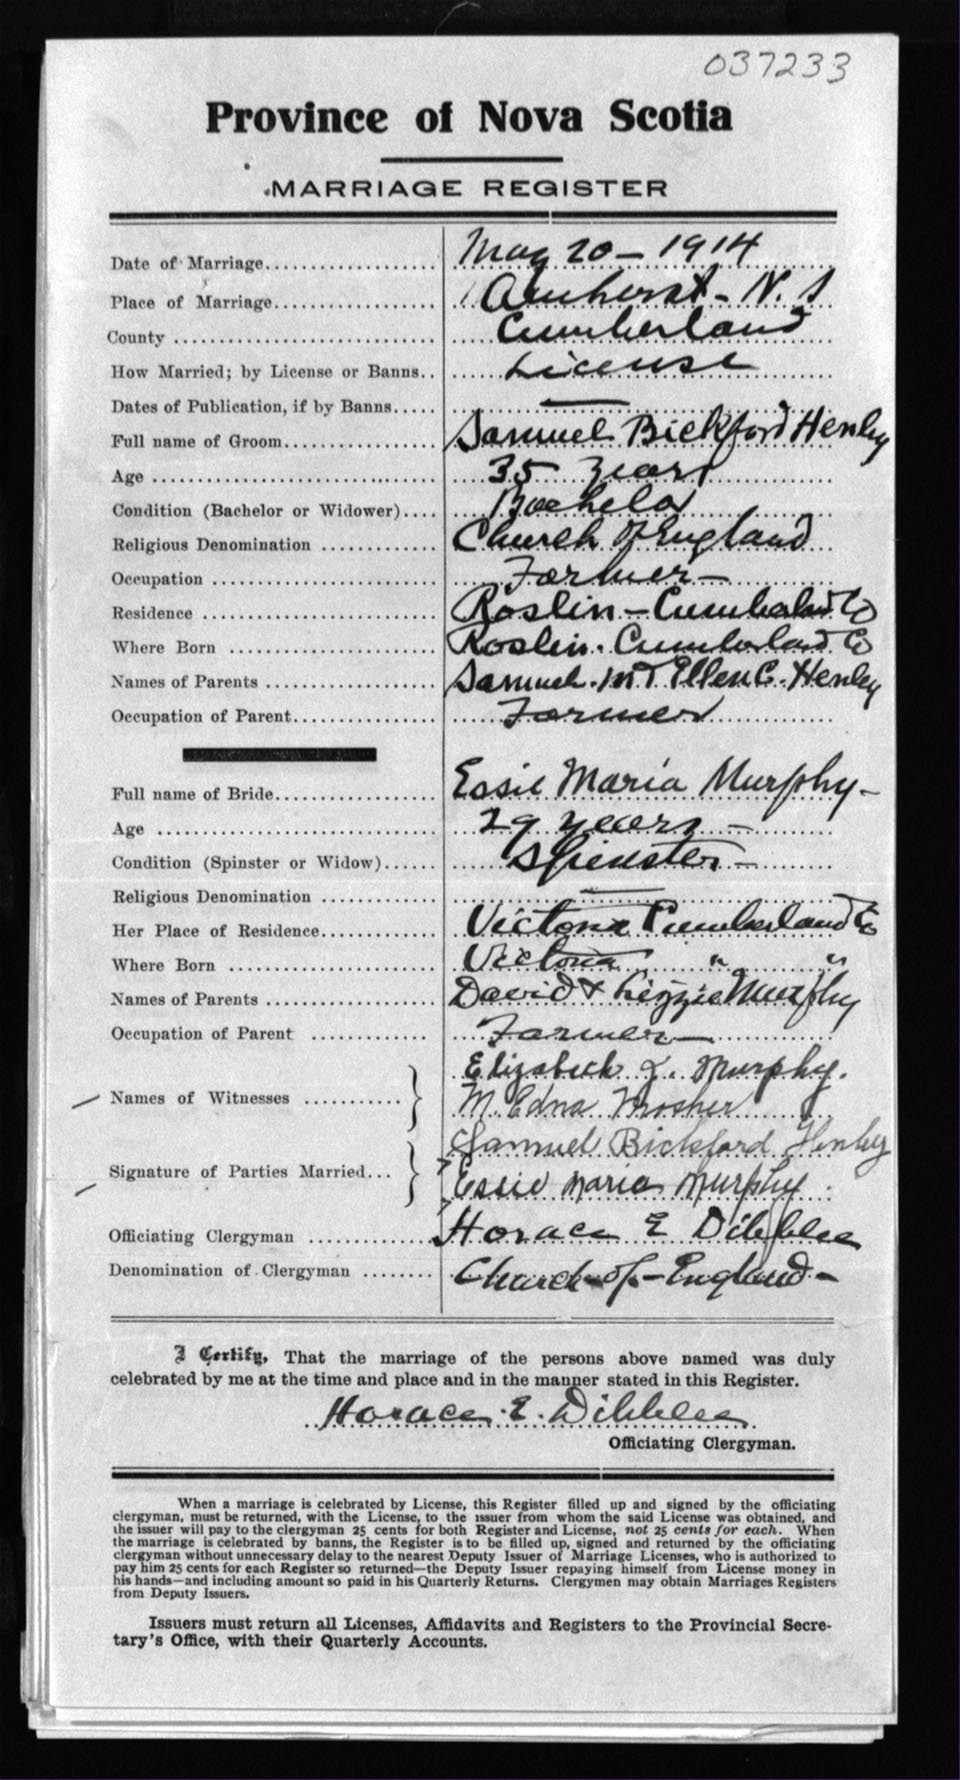 037233
Province of Nova Scotia
MARRIAGE REGISTER
Date of Marriage.................... May 20 - 1914
Place of Marriage................... Amherst - N. S
County ............................. Cumberland
How Married; by License or Banns.. License
Dates of Publication, if by Banns..... —
Full name of Groom.................. Samuel Bickford Henley
Age ................................ 35 years
Condition (Bachelor or Widower).... Bachelor
Religious Denomination ............. Church of England
Occupation ......................... Farmer -
Residence .......................... Roslin - Cumberland Co
Where Born ......................... Roslin. Cumberland Co
Names of Parents ................... Samuel. M & Ellen C. Henley
Occupation of Parent................ Farmer
Full name of Bride.................. Essie Maria Murphy -
Age ................................ 29 years -
Condition (Spinster or Widow)...... Spinster -
Religious Denomination ............. —
Her Place of Residence............. Victoria Cumberland Co
Where Born ......................... Victoria " "
Names of Parents ................... David & Lizzie Murphy
Occupation of Parent ............. Farmer -
Elizabeth L. Murphy.
Names of Witnesses ........... } M. Edna Mosher
Samuel Bickford Henley
Signature of Parties Married... } Essie Maria Murphy
Officiating Clergyman ............. Horace E Dibblee
Denomination of Clergyman ........ Church - of - England -
I Certify, That the marriage of the persons above named was duly
celebrated by me at the time and place and in the manner stated in this Register.
Horace. E. Dibblee
Officiating Clergyman.
When a marriage is celebrated by License, this Register filled up and signed by the officiating
clergyman, must be returned, with the License, to the issuer from whom the said License was obtained, and
the issuer will pay to the clergyman 25 cents for both Register and License, not 25 cents for each. When
the marriage is celebrated by banns, the Register is to be filled up, signed and returned by the officiating
clergyman without unnecessary delay to the nearest Deputy Issuer of Marriage Licenses, who is authorized to
pay him 25 cents for each Register so returned—the Deputy Issuer repaying himself from License money in
his hands—and including amount so paid in his Quarterly Returns. Clergymen may obtain Marriages Registers
from Deputy Issuers.
Issuers must return all Licenses, Affidavits and Registers to the Provincial Secre-
tary's Office, with their Quarterly Accounts.